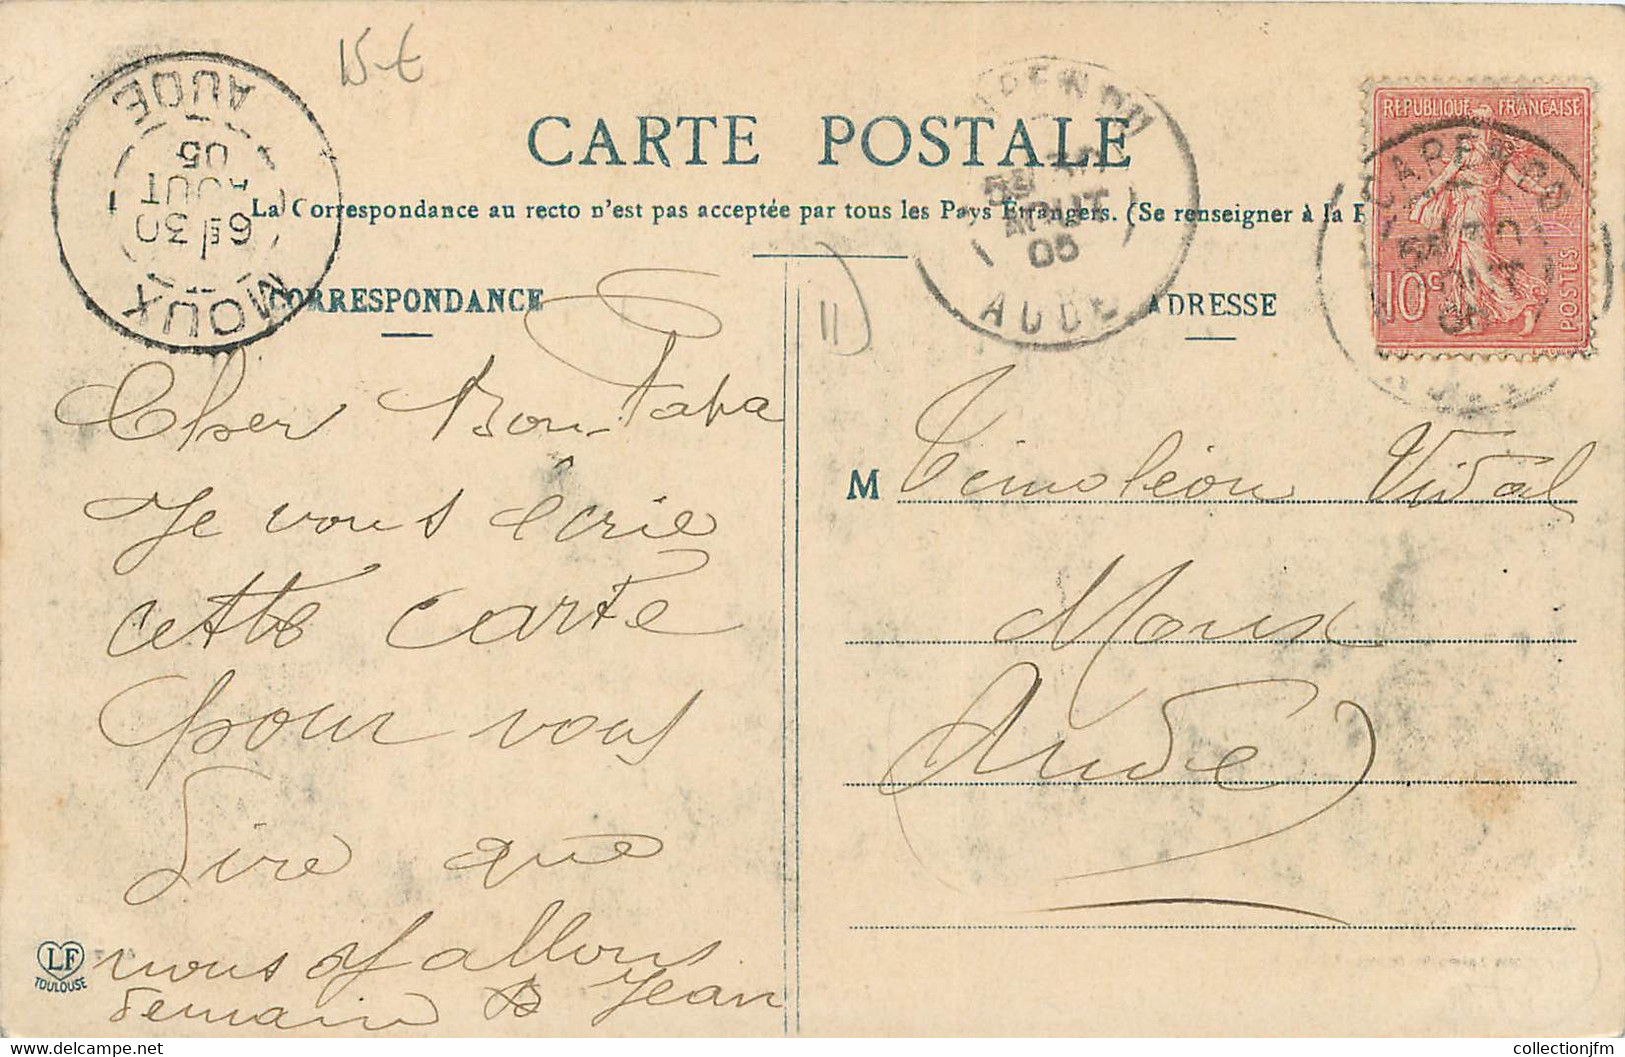 15 €
CARTE POSTALE
La Correspondance au recto n'est pas acceptée par tous les Pays Etrangers. (Se renseigner à la P
CORRESPONDANCE
ADRESSE
MOUX
6E/30
AOUT
05
AUDE
CAPENDU
5E
AOUT
05
AUDE
REPUBLIQUE FRANÇAISE
10c
POSTES
CAPENDU
11)
Cher Bon-Papa
Je vous écrie
cette carte
pour vous
dire que
nous y allons
demain B Jean
M Timoléon Vidal
Moux
Aude
LF
TOULOUSE
collectionjfm